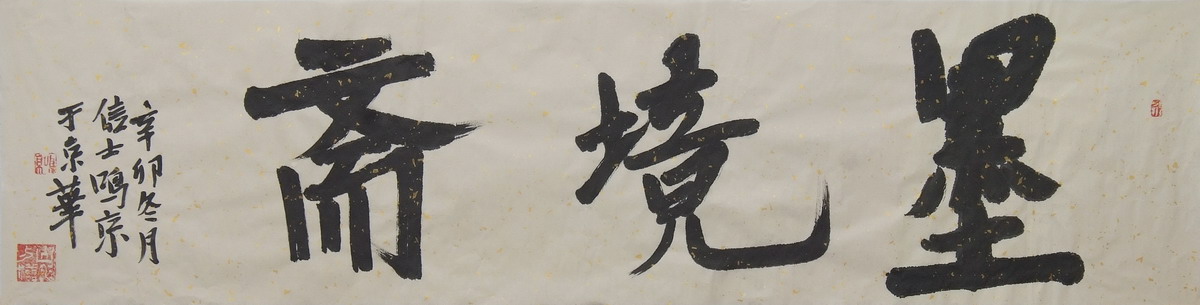 墨境斋
辛卯冬月
信士鸣京
于京華